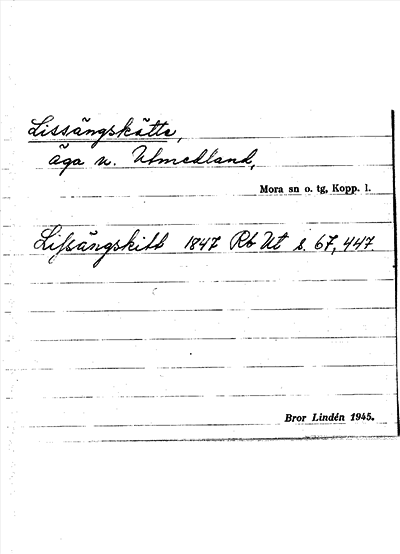 Lissängskätte,
äga n. Utmedland,
Mora sn o. tg, Kopp. l.
Lissängskitt 1847 Rb Ut s. 67, 447.
Bror Lindén 1945.